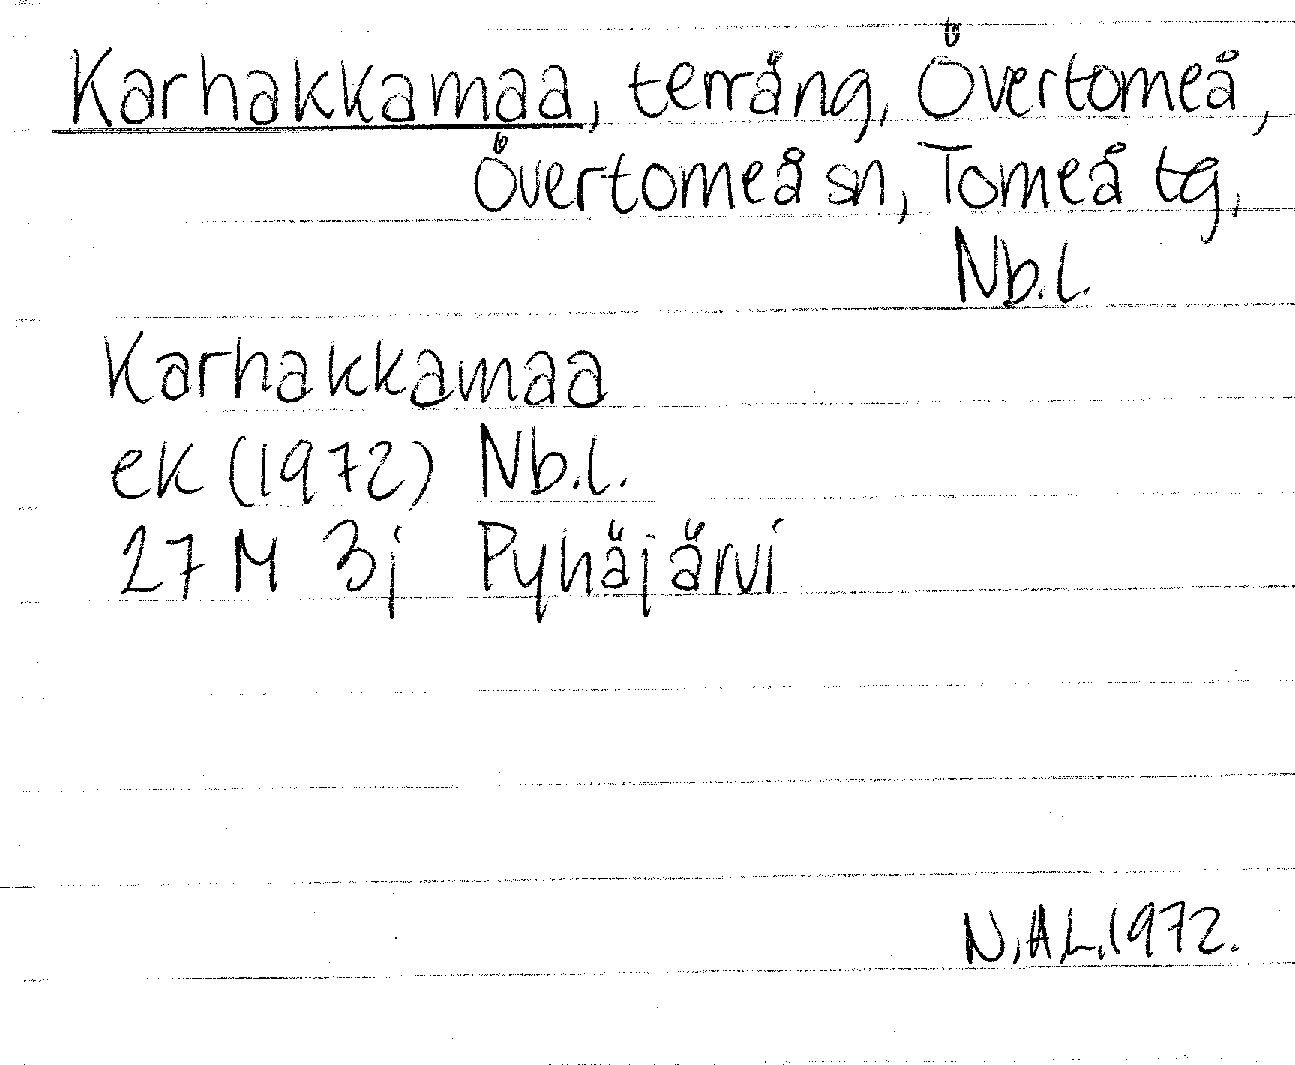 Karhakkamaa, terräng, Övertorneå,
Övertorneå sn, Torneå tg,
Nb.l.
Karhakkamaa
ek (1972) Nb.l.
27 M 3j Pyhäjärvi
N.A.L. 1972.